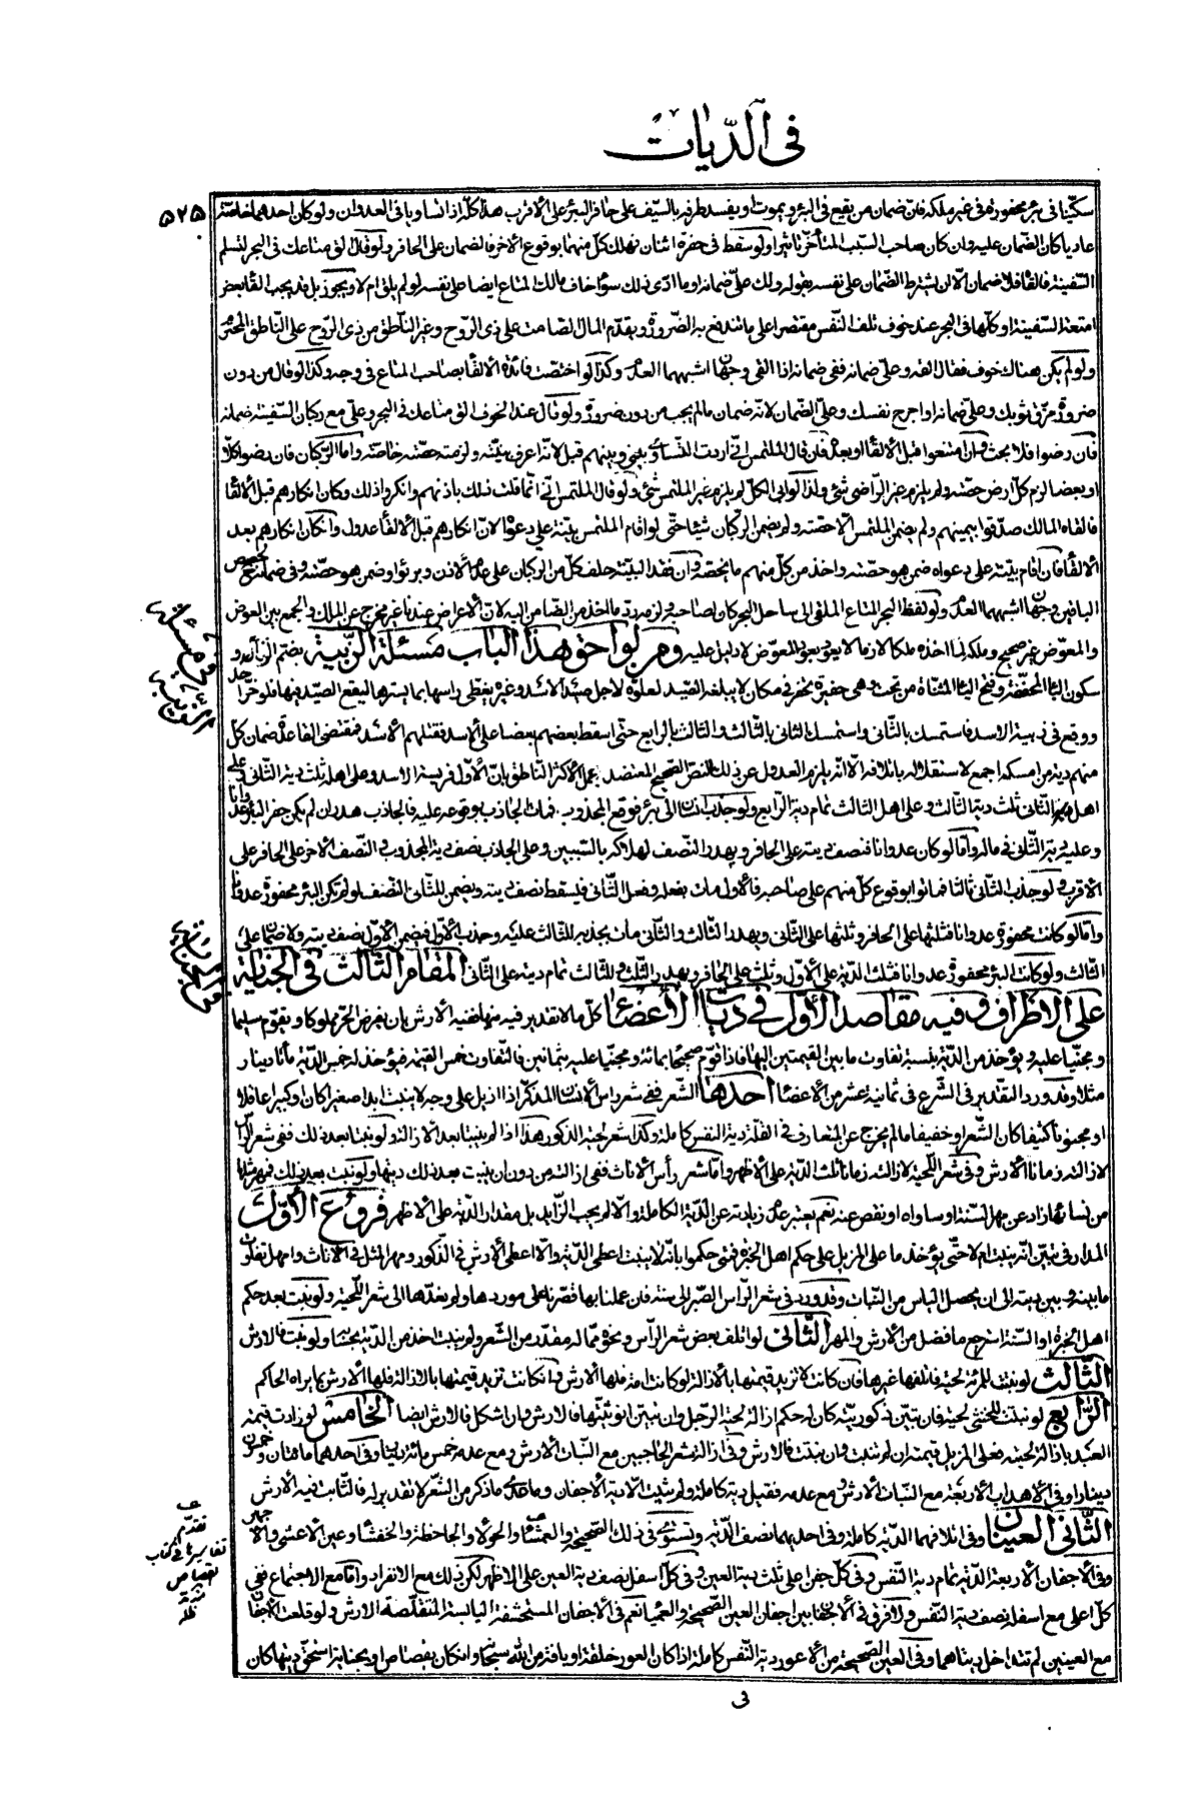 في الديات
٥٢٥
سكينا في بئر محفورة في غير ملكه فان ضمان من يقع في البئر ويموت او يفسد طرفه بالسيف على حافر البئر على الأقرب هذا كله اذا تساويا في العدوان ولو كان احدهما خاصة
عاديا كان الضمان عليه وان كان صاحب السبب المتأخر تاثيرا ولو سقط في حفرة اثنان فهلك كل منهما بوقوع الآخر فالضمان على الحافر ولو قال الق متاعك في البحر لتسلم
السفينة فالقاه فلا ضمان الا ان يشترط الضمان على نفسه بقوله ولك علي ضمانه او ما ادى ذلك سواء خاف مالك المتاع ايضا على نفسه لو لم يلق ام لا ويجوز بل قد يجب القاء بعض
امتعة السفينة او كلها في البحر عند خوف تلف النفس مقتصرا على ما تندفع به الضرورة ويقدم المال الصامت على ذي الروح وغير الناطق من ذي الروح على الناطق المحترم
ولو لم يكن هناك خوف فقال القه وعلي ضمانه ففي ضمانه اذا القي وجهان اشبههما العدم وكذا لو اختصت فائدة الالقاء بصاحب المتاع في وجه وكذا لو قال من دون
ضرورة مزق ثوبك وعلي ضمانه او اجرح نفسك وعلي الضمان لانه ضمان ما لم يجب من دون ضرورة ولو قال عند الخوف الق متاعك في البحر وعلي مع ركبان السفينة ضمانه
فان رضوا فلا بحث وان امتنعوا قبل الالقاء او بعده فان قال الملتمس اني اردت التساوي بيني وبينهم قبل لانه اعرف بنيته ولزمته حصته خاصة واما الركبان فان رضوا كلا
او بعضا لزم كل راض حصته ولم يلزم غير الراضي شئ ولذا لو ابى الكل لم يلزم غير الملتمس شئ ولو قال الملتمس اني انما قلت ذلك باذنهم وانكروا ذلك وكان انكارهم قبل الالقاء
فالقاه المالك صدقوا بيمينهم ولم يضمن الملتمس الا حصته ولم يضمن الركبان شيئا حتى لو اقام الملتمس بينة على دعواه لان انكارهم قبل الالقاء عدول وان كان انكارهم بعد
الالقاء فان اقام بينة على دعواه ضمن هو حصته واخذ من كل منهم ما يخصه وان فقد البينة حلف كل من الركبان على عدم الاذن وبرئوا وضمن هو حصته وفي ضمانه حصص
الباقين وجهان اشبههما العدم ولو لفظ البحر المتاع الملقى الى ساحل البحر كان لصاحبه ولزمه رد ما اخذ من الضامن اليه لان الأعراض عندنا غير مخرج عن الملك والجمع بين العوض
والمعوض غير صحيح وملكه لما اخذه ملكا لازما لا يعود بعود المعوض لا دليل عليه ومن لواحق هذا الباب مسئلة الزبية بضم الزاء و
سكون الباء المخففة وفتح الياء المثناة من تحت وهي حفيرة تحفر في مكان لا يبلغه الصيد لعلوه لاجل صيد الأسد وغيره يغطى راسها بما يسترها ليقع الصيد فيها فلو خر احد
ووقع في زبية الاسد فاستمسك بالثاني واستمسك الثاني بالثالث والثالث بالرابع حتى اسقط بعضهم بعضا على الأسد فقتلهم الأسد فمقتضى القاعدة ضمان كل
منهم دية من امسكه اجمع لاستقلاله باتلافه الا انه يلزم العدول عن ذلك للنص الصحيح المعتضد بعمل الاكثر الناطق بان الأول فريسة الاسد وعلى اهله ثلث دية الثاني وعلى
اهل الثاني ثلث دية الثالث وعلى اهل الثالث تمام دية الرابع ولو جذب انسانا الى بئر فوقع المجذوب فمات الجاذب بوقوعه عليه فالجاذب هدر ان لم يكن حفر البئر عدوانا
وعليه دية الثاني في ماله واما لو كان عدوانا فنصف ديته على الحافر ويهدر النصف لهلاكه بالسببين وعلى الجاذب نصف دية المجذوب والنصف الآخر على الحافر على
الأقرب ولو جذب الثاني ثالثا فماتوا بوقوع كل منهم على صاحبه فالأول مات بفعله وفعل الثاني فيسقط نصف ديته ويضمن للثاني النصف لو لم تكن البئر محفورة عدوانا
واما لو كانت محفورة عدوانا فثلثها على الحافر وثلثها على الثاني ويهدر الثالث والثاني مات بجذبه للثالث عليه وجذب الأول فضمن الأول نصف ديته ولا ضمان على
الثالث ولو كانت البئر محفورة عدوانا فثلث الدية على الأول وثلث على الحافر ويهدر الثلث وللثالث تمام ديته على الثاني المقام الثالث في الجناية
على الاطراف وفيه مقاصد الأول في ديات الأعضاء كل ما لا تقدير فيه منها ففيه الأرش بان يفرض الحر مملوكا ويقوم سليما
ومجنيا عليه ويؤخذ من الدية بنسبة تفاوت ما بين القيمتين اليها فاذا قوم صحيحا بمائة ومجنيا عليه بثمانين فالتفاوت خمس القيمة فيؤخذ له خمس الدية مأتا دينار
مثلا وقد ورد التقدير في الشرع في ثمانية عشر من الأعضاء احدها الشعر ففي شعر رأس الأنسان المذكر اذا ازيل على وجه لا ينبت ابدا صغيرا كان او كبيرا عاقلا
او مجنونا كثيفا كان الشعر او خفيفا ما لم يخرج عن المتعارف في القلة دية النفس كاملة وكذا شعر لحية الذكور هذا اذا لم ينبتا بعد الأزالة ولو نبتا بعد ذلك ففي شعر الرأس
لازالته زمانا الأرش وفي شعر اللحية لازالته زمانا ثلث الدية على الأظهر واما شعر رأس الأناث ففي ازالته من دون ان ينبت بعد ذلك ديتها ولو نبت بعد ذلك فمهر مثلها
من نسائها زاد عن مهر السنة او ساواه او نقص عنه نعم يعتبر عدم زيادته عن الدية الكاملة والا لم يجب الزائد بل مقدار الدية على الأظهر فروع الأول
المدار في تبين انه ينبت ام لا حتى يؤخذ ما على المزيل على حكم اهل الخبرة فمتى حكموا بانه لا ينبت اعطى الدية والا اعطى الأرش في الذكور ومهر المثل في الاناث وامهل تفاوت
ما بينه وبين ديته الى ان يحصل اليأس من النبات وقد ورد في شعر الرأس الصبر الى سنة فان عملنا بها قصرنا على موردها ولو نعدها الى شعر اللحية ولو نبت بعد حكم
اهل الخبرة او السنة استرجع ما فضل من الأرش والمهر الثاني لو اتلف بعض شعر الرأس ونحوه مما له مقدر من الشعر ولم ينبت اخذ من الدية بحسابه ولو نبت فالارش
الثالث لو نبتت للمرئة لحية فاتلفها غيرها فان كانت لا تزيد قيمتها بالأزالة لو كانت امة فلها الأرش وان كانت تزيد قيمتها بالازالة فلها الأرش بما يراه الحاكم
الرابع لو نبتت للخنثى لحية فان تبين ذكوريته كان له حكم ازالة لحية الرجل وان تبين انوثيتها فالارش وان اشكل فالارش ايضا الخامس لو زادت قيمة
العبد بازالة لحيته فعلى المزيل قيمته ان لم تنبت وان نبتت فالارش وفي ازالة شعر الحاجبين مع النبات الأرش ومع عدمه خمس مائة دينار وفي احدهما مائتان وخمسون
دينارا وفي الأهداب الأربعة مع النبات الأرش ومع عدمه فقيل دية كاملة ولم يثبت الا دية الأجفان وما عدا ما ذكر من الشعر لا تقدير له فالثابت فيه الأرش
الثاني العينان وفي اتلافهما الدية كاملة وفي احديهما نصف الدية وتستوي في ذلك الصحيحة والعمشاء والحولاء والجاحظة والخفشاء وعين الأعشى والأجهر
وفي الأجفان الأربعة الدية تمام دية النفس وفي كل جفن اعلى ثلث دية العين وفي كل اسفل نصف دية العين على الاظهر لكن ذلك مع الانفراد واما مع الاجتماع ففي
كل اعلى مع اسفله نصف دية النفس ولا فرق في الأجفان بين اجفان العين الصحيحة والعمياء نعم في الأجفان المستحشفة اليابسة المتقلصة الارش ولو قلعت الأجفان
مع العينين لم تتداخل ديتاهما وفي العين الصحيحة من الأعور دية النفس كاملة اذا كان العور خلقة او بآفة من الله سبحانه وان كان بقصاص او بجناية استحق ديتها كان
في مسئلة الزبية
تقدم
تفاسيرها في كتاب
القصاص
منه مد
ظله
في